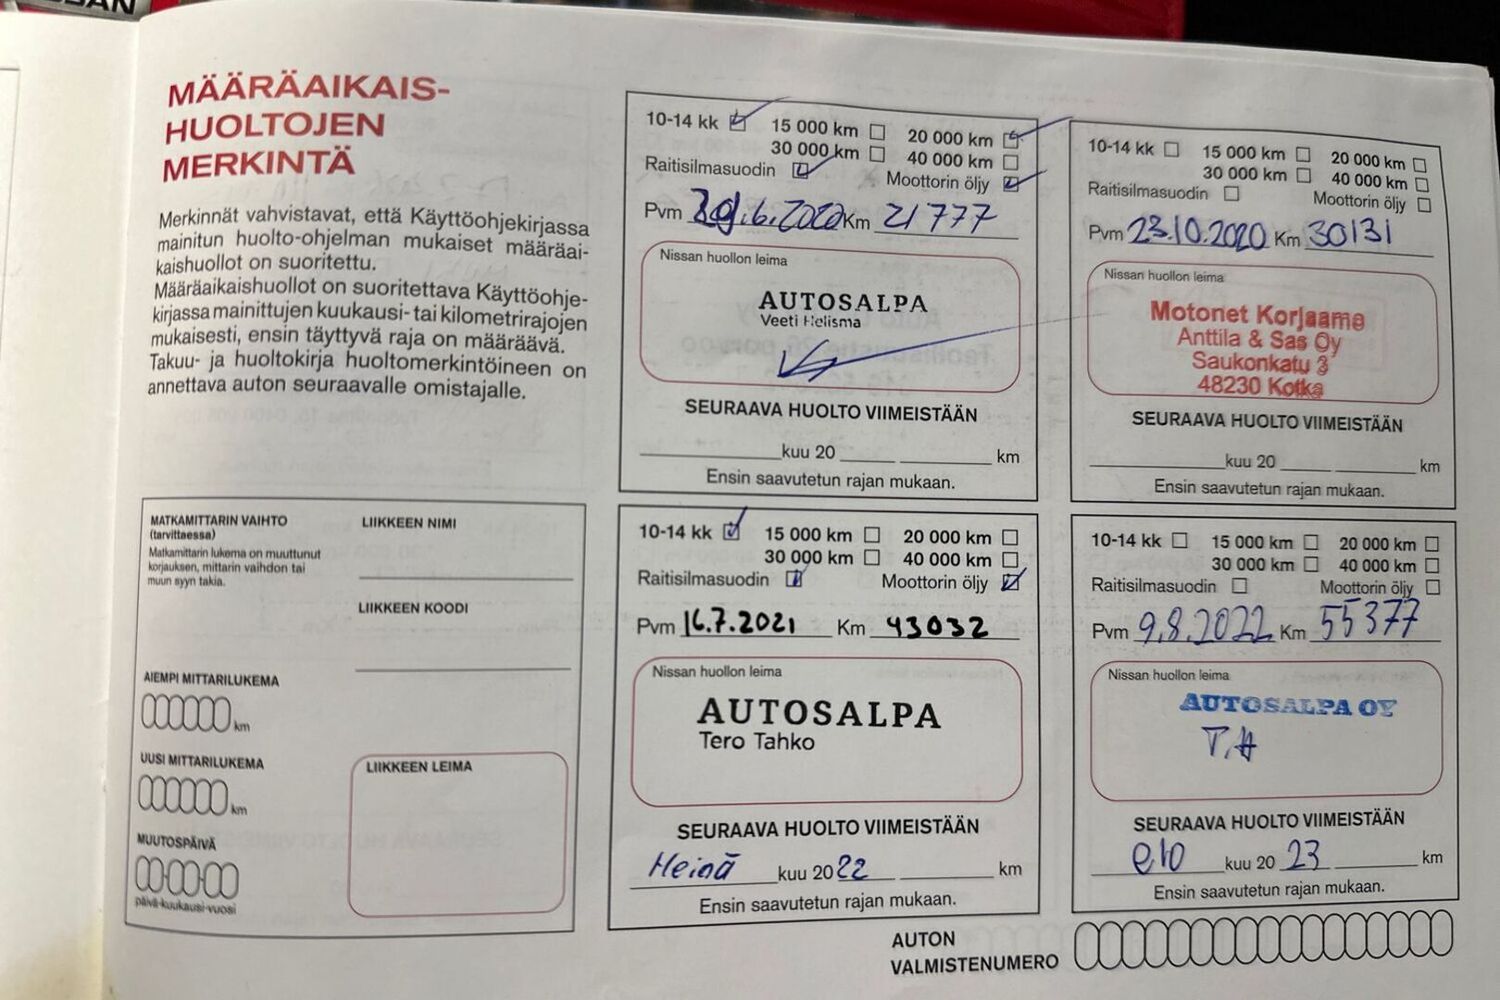 SSAN
MÄÄRÄAIKAIS-
HUOLTOJEN
MERKINTÄ
Merkinnät vahvistavat, että Käyttöohjekirjassa
mainitun huolto-ohjelman mukaiset määräai-
kaishuollot on suoritettu.
Määräaikaishuollot on suoritettava Käyttöohje-
kirjassa mainittujen kuukausi- tai kilometrirajojen
mukaisesti, ensin täyttyvä raja on määräävä.
Takuu- ja huoltokirja huoltomerkintöineen on
annettava auton seuraavalle omistajalle.
10-14 kk 15 000 km 20 000 km
30 000 km 40 000 km
Raitisilmasuodin Moottorin öljy
Pvm 29.6.2020 Km 21777
Nissan huollon leima
AUTOSALPA
Veeti Helisma
SEURAAVA HUOLTO VIIMEISTÄÄN
kuu 20 km
Ensin saavutetun rajan mukaan.
10-14 kk 15 000 km 20 000 km
30 000 km 40 000 km
Raitisilmasuodin Moottorin öljy
Pvm 23.10.2020 Km 30131
Nissan huollon leima
Motonet Korjaamo
Anttila & Sas Oy
Saukonkatu 3
48230 Kotka
SEURAAVA HUOLTO VIIMEISTÄÄN
kuu 20 km
Ensin saavutetun rajan mukaan.
MATKAMITTARIN VAIHTO
(tarvittaessa)
Matkamittarin lukema on muuttunut
korjauksen, mittarin vaihdon tai
muun syyn takia.
LIIKKEEN NIMI
LIIKKEEN KOODI
AIEMPI MITTARILUKEMA
km
UUSI MITTARILUKEMA
km
MUUTOSPÄIVÄ
päivä-kuukausi-vuosi
LIIKKEEN LEIMA
10-14 kk 15 000 km 20 000 km
30 000 km 40 000 km
Raitisilmasuodin Moottorin öljy
Pvm 16.7.2021 Km 43032
Nissan huollon leima
AUTOSALPA
Tero Tahko
SEURAAVA HUOLTO VIIMEISTÄÄN
Heinä kuu 2022 km
Ensin saavutetun rajan mukaan.
10-14 kk 15 000 km 20 000 km
30 000 km 40 000 km
Raitisilmasuodin Moottorin öljy
Pvm 9.8.2022 Km 55377
Nissan huollon leima
AUTOSALPA OY
T.H
SEURAAVA HUOLTO VIIMEISTÄÄN
elo kuu 20 23 km
Ensin saavutetun rajan mukaan.
AUTON
VALMISTENUMERO